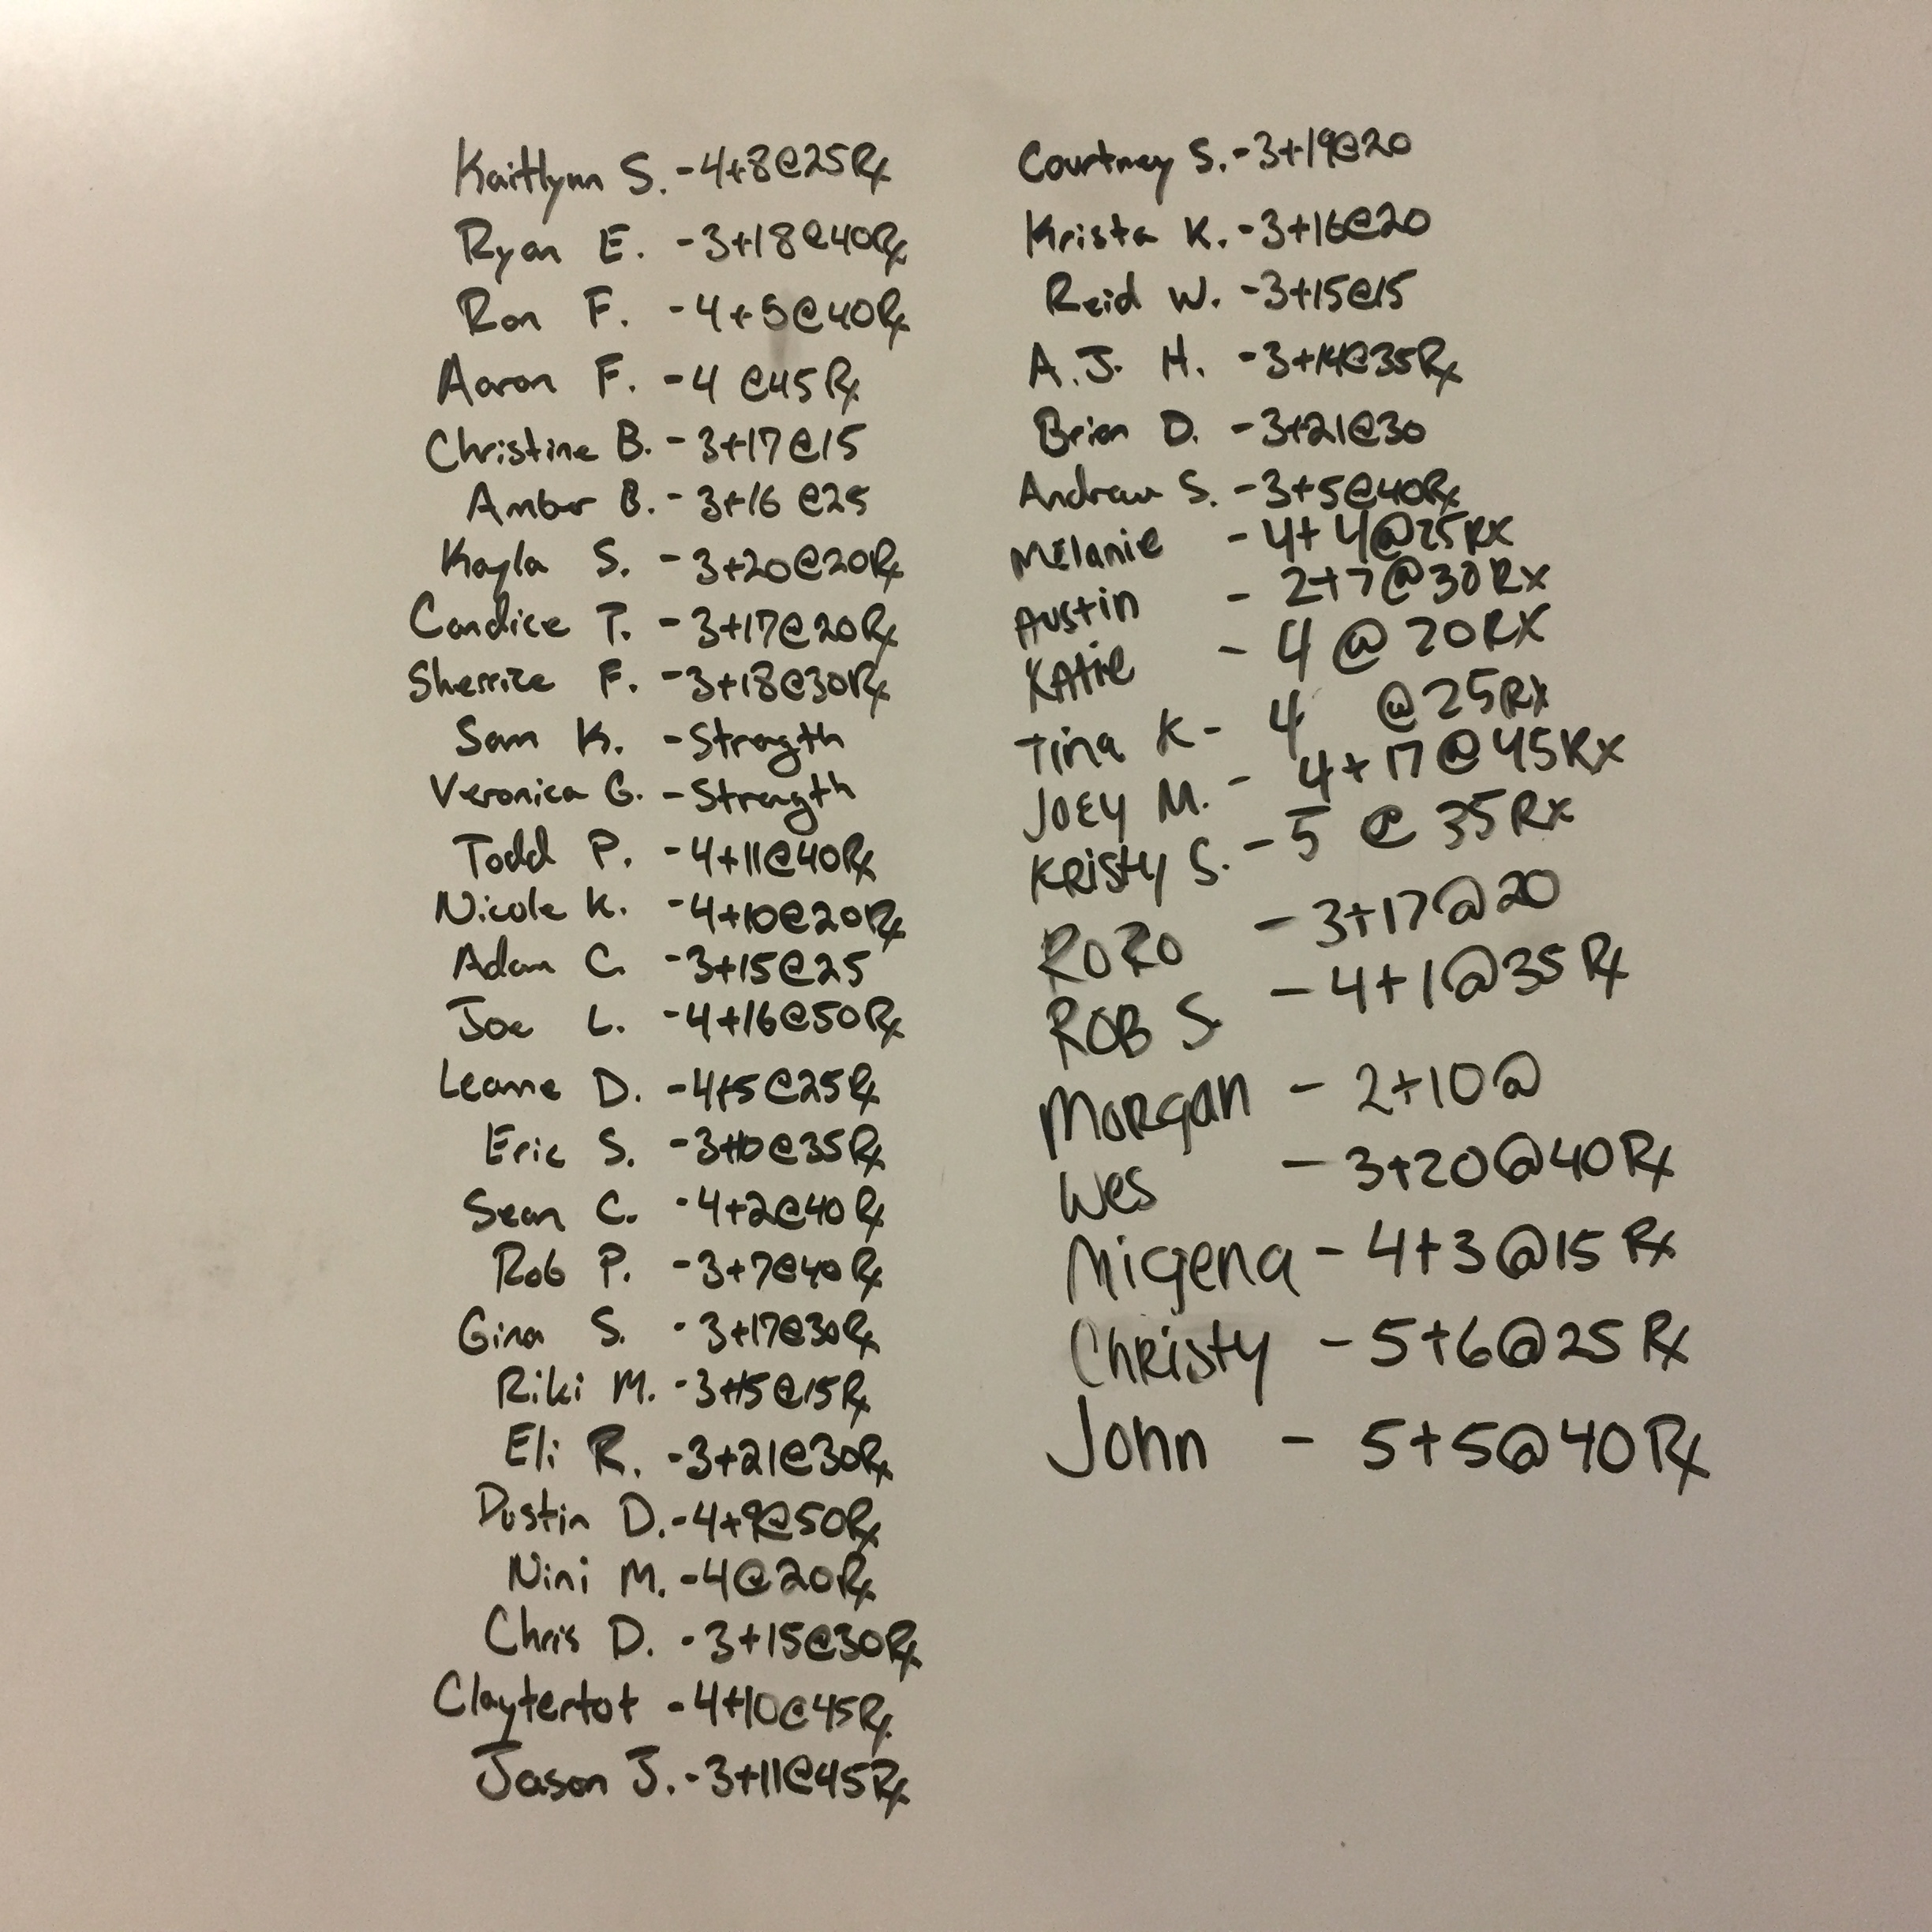 Kaitlynn S. - 4+8@25Rx
Ryan E. - 3+18@40Rx
Ron F. - 4+5@40Rx
Aaron F. - 4 @45Rx
Christine B. - 3+17@15
Amber B. - 3+16 @25
Kayla S. - 3+20@20Rx
Candice T. - 3+17@20Rx
Sherrice F. - 3+18@30Rx
Sam K. - Strength
Veronica G. - Strength
Todd P. - 4+11@40Rx
Nicole K. - 4+10@20Rx
Adam C. - 3+15@25
Joe L. - 4+16@50Rx
Leanne D. - 4+5@25Rx
Eric S. - 3+10@35Rx
Sean C. - 4+2@40Rx
Rob P. - 3+7@40Rx
Gina S. - 3+17@30Rx
Riki M. - 3+15@15Rx
Eli R. - 3+21@30Rx
Dustin D. - 4+9@50Rx
Nini M. - 4@20Rx
Chris D. - 3+15@30Rx
Claytertot - 4+10@45Rx
Jason J. - 3+11@45Rx
Courtney S. - 3+19@20
Krista K. - 3+16@20
Reid W. - 3+15@15
A.J. H. - 3+14@35Rx
Brian D. - 3+21@30
Andrew S. - 3+5@40Rx
Melanie - 4+4@25RX
Austin - 2+7@30Rx
Katie - 4 @ 20RX
Tina K - 4 @25Rx
Joey M. - 4+17@45Rx
Kristy S. - 5 @ 35Rx
RORO - 3+17@20
ROB S - 4+1@35 Rx
Morgan - 2+10@
Wes - 3+20@40Rx
Migena - 4+3@15 Rx
Christy - 5+6@25 Rx
John - 5+5@40Rx